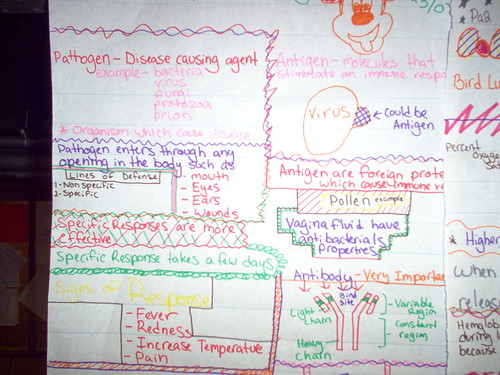 Pathogen - Disease causing agent
example - bacteria
virus
fungi
protozoa
prion
* Organism which cause disease
Pathogen enters through any
opening in the body such as
- mouth
- Eyes
- Ears
- Wounds
Lines of Defense
1- Non Specific
2- Specific
Specific Responses are more
effective
Specific Response takes a few days
Signs of Response
- Fever
- Redness
- Increase Temperature
- Pain
Antigen - molecules that
stimulate an immune resp
Virus
← could be
Antigen
Antigen are foreign prote
which cause Immune r
Pollen example
Vagina fluid have
antibacterials
Properties
Antibody - Very Importan
Bind
site
Light
Chain
- Variable
Region
constant
region
Heavy
chain
Pa2
Bird Lu
Percent Oxyge
Sat
* Higher
When
releas
Hemolob
during
because